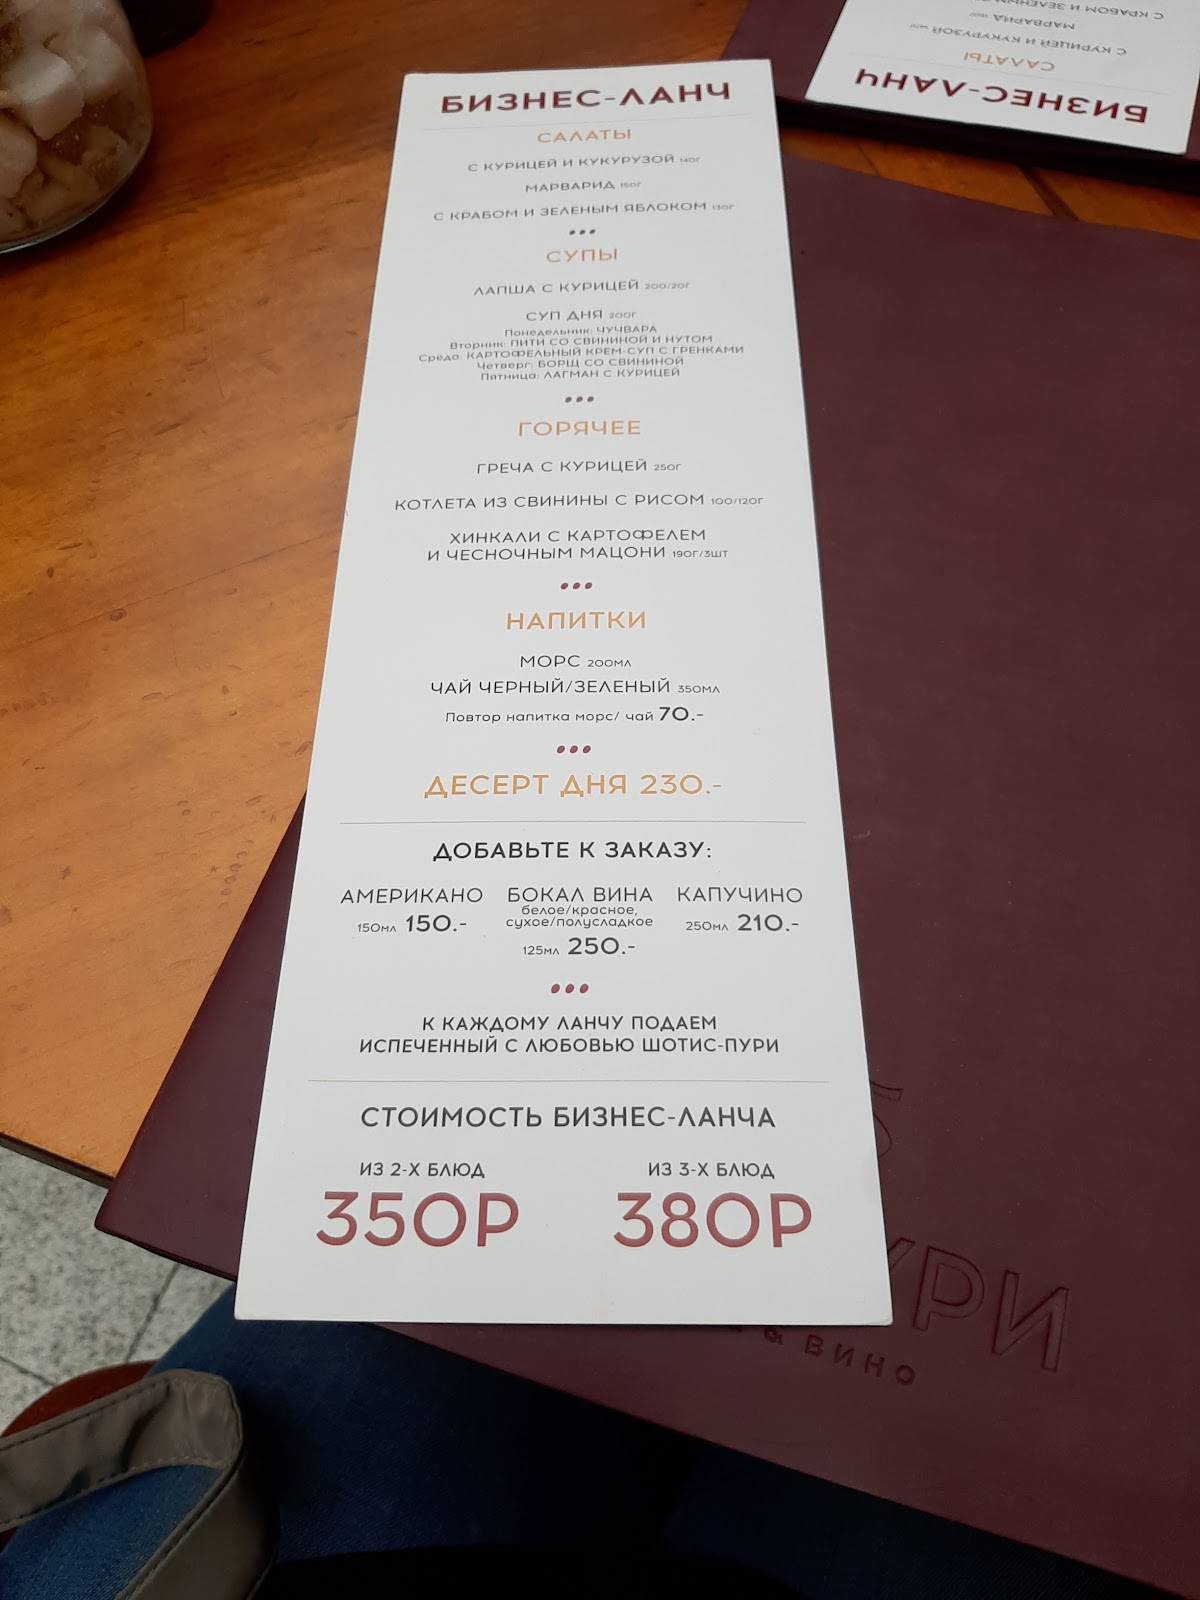 БИЗНЕС-ЛАНЧ
САЛАТЫ
С КУРИЦЕЙ И КУКУРУЗОЙ 140Г
МАРВАРИД 150Г
С КРАБОМ И ЗЕЛЕНЫМ ЯБЛОКОМ 130Г
СУПЫ
ЛАПША С КУРИЦЕЙ 200/20Г
СУП ДНЯ 200Г
Понедельник: ЧУЧВАРА
Вторник: ПИТИ СО СВИНИНОЙ И НУТОМ
Среда: КАРТОФЕЛЬНЫЙ КРЕМ-СУП С ГРЕНКАМИ
Четверг: БОРЩ СО СВИНИНОЙ
Пятница: ЛАГМАН С КУРИЦЕЙ
ГОРЯЧЕЕ
ГРЕЧА С КУРИЦЕЙ 250Г
КОТЛЕТА ИЗ СВИНИНЫ С РИСОМ 100/120Г
ХИНКАЛИ С КАРТОФЕЛЕМ
И ЧЕСНОЧНЫМ МАЦОНИ 190Г/3ШТ
НАПИТКИ
МОРС 200МЛ
ЧАЙ ЧЕРНЫЙ/ЗЕЛЕНЫЙ 350МЛ
Повтор напитка морс/ чай 70.-
ДЕСЕРТ ДНЯ 230.-
ДОБАВЬТЕ К ЗАКАЗУ:
АМЕРИКАНО
150МЛ 150.-
БОКАЛ ВИНА
белое/красное,
сухое/полусладкое
125МЛ 250.-
КАПУЧИНО
250МЛ 210.-
К КАЖДОМУ ЛАНЧУ ПОДАЕМ
ИСПЕЧЕННЫЙ С ЛЮБОВЬЮ ШОТИС-ПУРИ
СТОИМОСТЬ БИЗНЕС-ЛАНЧА
ИЗ 2-Х БЛЮД
350Р
ИЗ 3-Х БЛЮД
380Р
БИЗНЕС-ЛАНЧ
САЛАТЫ
С КУРИЦЕЙ И КУКУРУЗОЙ
МАРВАРИД
С КРАБОМ И ЗЕЛЕНЫМ
УРИ
& ВИНО